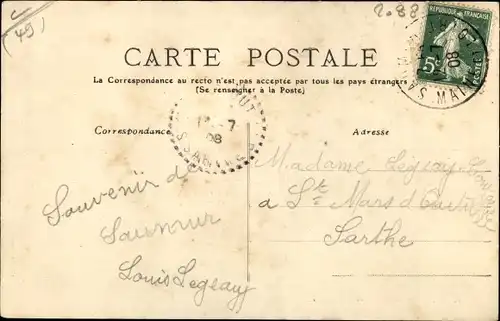 (49)
2.88
RÉPUBLIQUE FRANÇAISE
5c
POSTES
08
CARTE POSTALE
La Correspondance au recto n'est pas acceptée par tous les pays étrangers
(Se renseigner à la Poste)
7
08
Correspondance
Adresse
Souvenir de
Saumur
Louis Legeay
Madame Legeay
a St Mars d'Outillé
Sarthe